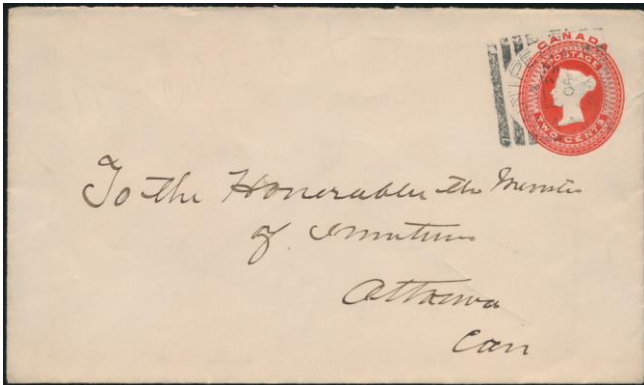 CANADA
POSTAGE
TWO CENTS
To the Honorable the Minister
of
Ottawa
Can